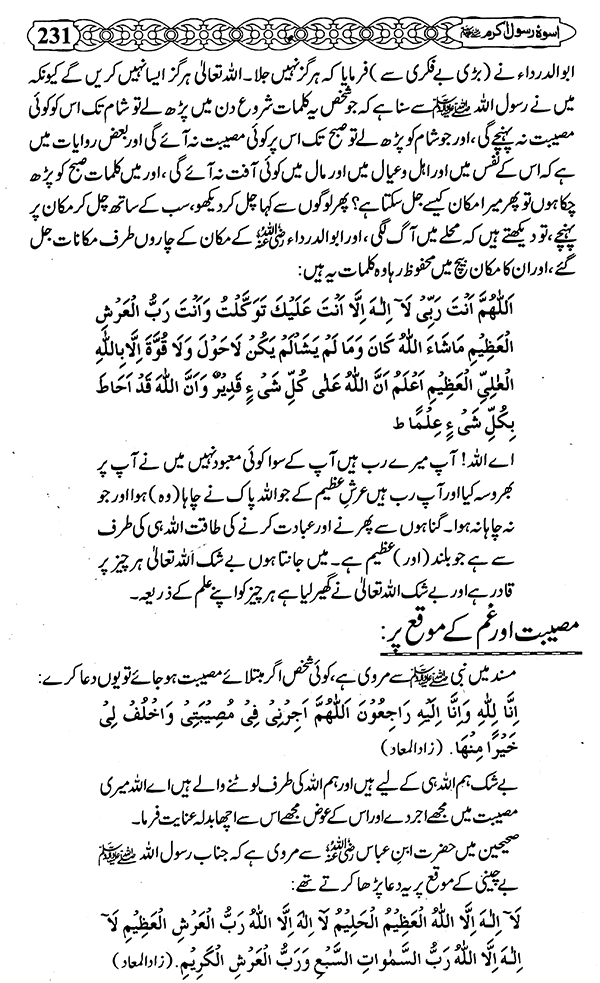 231 اسوۂ رسول اکرم ﷺ
ابوالدرداء نے (بڑی بے فکری سے) فرمایا کہ ہرگز نہیں جلا۔ اللہ تعالیٰ ہرگز ایسا نہیں کریں گے کیونکہ
میں نے رسول اللہ ﷺ سے سنا ہے کہ جو شخص یہ کلمات شروع دن میں پڑھ لے تو شام تک اس کو کوئی
مصیبت نہ پہنچے گی، اور جو شام کو پڑھ لے تو صبح تک اس پر کوئی مصیبت نہ آئے گی اور بعض روایات میں
ہے کہ اس کے نفس میں اور اہل و عیال میں اور مال میں کوئی آفت نہ آئے گی، اور میں کلمات صبح کو پڑھ
چکا ہوں تو پھر میرا مکان کیسے جل سکتا ہے؟ پھر لوگوں سے کہا چل کر دیکھو، سب کے ساتھ چل کر مکان پر
پہنچے، تو دیکھتے ہیں کہ محلے میں آگ لگی، اور ابوالدرداء ؓ کے مکان کے چاروں طرف مکانات جل
گئے، اور ان کا مکان بیچ میں محفوظ رہا وہ کلمات یہ ہیں:
اَللّٰهُمَّ اَنْتَ رَبِّیْ لَآ اِلٰهَ اِلَّا اَنْتَ عَلَیْكَ تَوَكَّلْتُ وَاَنْتَ رَبُّ الْعَرْشِ
الْعَظِیْمِ مَاشَاءَ اللّٰهُ كَانَ وَمَا لَمْ یَشَأْلَمْ یَكُنْ لَاحَوْلَ وَلَا قُوَّةَ اِلَّابِاللّٰهِ
الْعُلِیِّ الْعَظِیْمِ اَعْلَمُ اَنَّ اللّٰهَ عَلٰی كُلِّ شَیْ ءٍ قَدِیْرٌ وَاَنَّ اللّٰهَ قَدْ اَحَاطَ
بِكُلِّ شَیْ ءٍ عِلْمًا ط
اے اللہ! آپ میرے رب ہیں آپ کے سوا کوئی معبود نہیں میں نے آپ پر
بھروسہ کیا اور آپ رب ہیں عرش عظیم کے جو اللہ پاک نے چاہا (وہ) ہوا اور جو
نہ چاہا نہ ہوا۔ گناہوں سے پھرنے اور عبادت کرنے کی طاقت اللہ ہی کی طرف
سے ہے جو بلند (اور) عظیم ہے۔ میں جانتا ہوں بے شک اللہ تعالیٰ ہر چیز پر
قادر ہے اور بے شک اللہ تعالیٰ نے گھیر لیا ہے ہر چیز کو اپنے علم کے ذریعہ۔
مصیبت اور غم کے موقع پر:
مسند میں نبی ﷺ سے مروی ہے، کوئی شخص اگر مبتلائے مصیبت ہو جائے تو یوں دعا کرے:
اِنَّا لِلّٰهِ وَاِنَّا اِلَیْهِ رَاجِعُوْنَ اَللّٰهُمَّ اَجِرْنِیْ فِیْ مُصِیْبَتِیْ وَاخْلُفْ لِیْ
خَیْرًا مِنْهَا. (زاد المعاد)
بے شک ہم اللہ ہی کے لیے ہیں اور ہم اللہ کی طرف لوٹنے والے ہیں اے اللہ میری
مصیبت میں مجھے اجر دے اور اس کے عوض مجھے اس سے اچھا بدلہ عنایت فرما۔
صحیحین میں حضرت ابن عباس ؓ سے مروی ہے کہ جناب رسول اللہ ﷺ
بے چینی کے موقع پر یہ دعا پڑھا کرتے تھے:
لَآ اِلٰهَ اِلَّا اللّٰهُ الْعَظِیْمُ الْحَلِیْمُ لَآ اِلٰهَ اِلَّا اللّٰهُ رَبُّ الْعَرْشِ الْعَظِیْمِ لَآ
اِلٰهَ اِلَّا اللّٰهُ رَبُّ السَّمٰوٰتِ السَّبْعِ وَرَبُّ الْعَرْشِ الْكَرِیْمِ. (زاد المعاد)